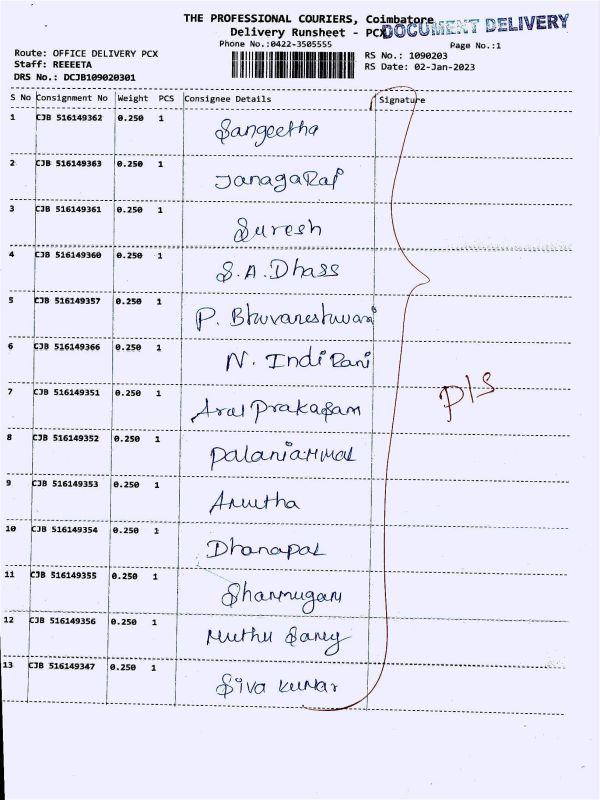 THE PROFESSIONAL COURIERS, Coimbatore
DOCUMENT DELIVERY
Delivery Runsheet - PCX
Phone No.:0422-3505555
Page No.:1
Route: OFFICE DELIVERY PCX
RS No.: 1090203
Staff: REEEETA
RS Date: 02-Jan-2023
DRS No.: DCJB109020301
S No Consignment No Weight PCS Consignee Details Signature
1 CJB 516149362 0.250 1 Sangeetha
2 CJB 516149363 0.250 1 JanagaRaj
3 CJB 516149361 0.250 1 Suresh
4 CJB 516149360 0.250 1 S.A.Dhass
5 CJB 516149357 0.250 1 P. Bhuvaneshwari
6 CJB 516149366 0.250 1 N. Indi Rani
7 CJB 516149351 0.250 1 Arul Prakasam
PIS
8 CJB 516149352 0.250 1 Palaniammal
9 CJB 516149353 0.250 1 Amutha
10 CJB 516149354 0.250 1 Dhanapal
11 CJB 516149355 0.250 1 Shanmugam
12 CJB 516149356 0.250 1 Muthu Samy
13 CJB 516149347 0.250 1 Siva kumar